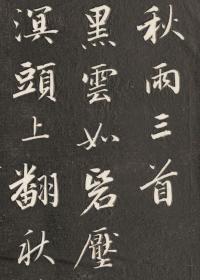 秋雨三首
黑雲如罯壓
溟頭上翻秋